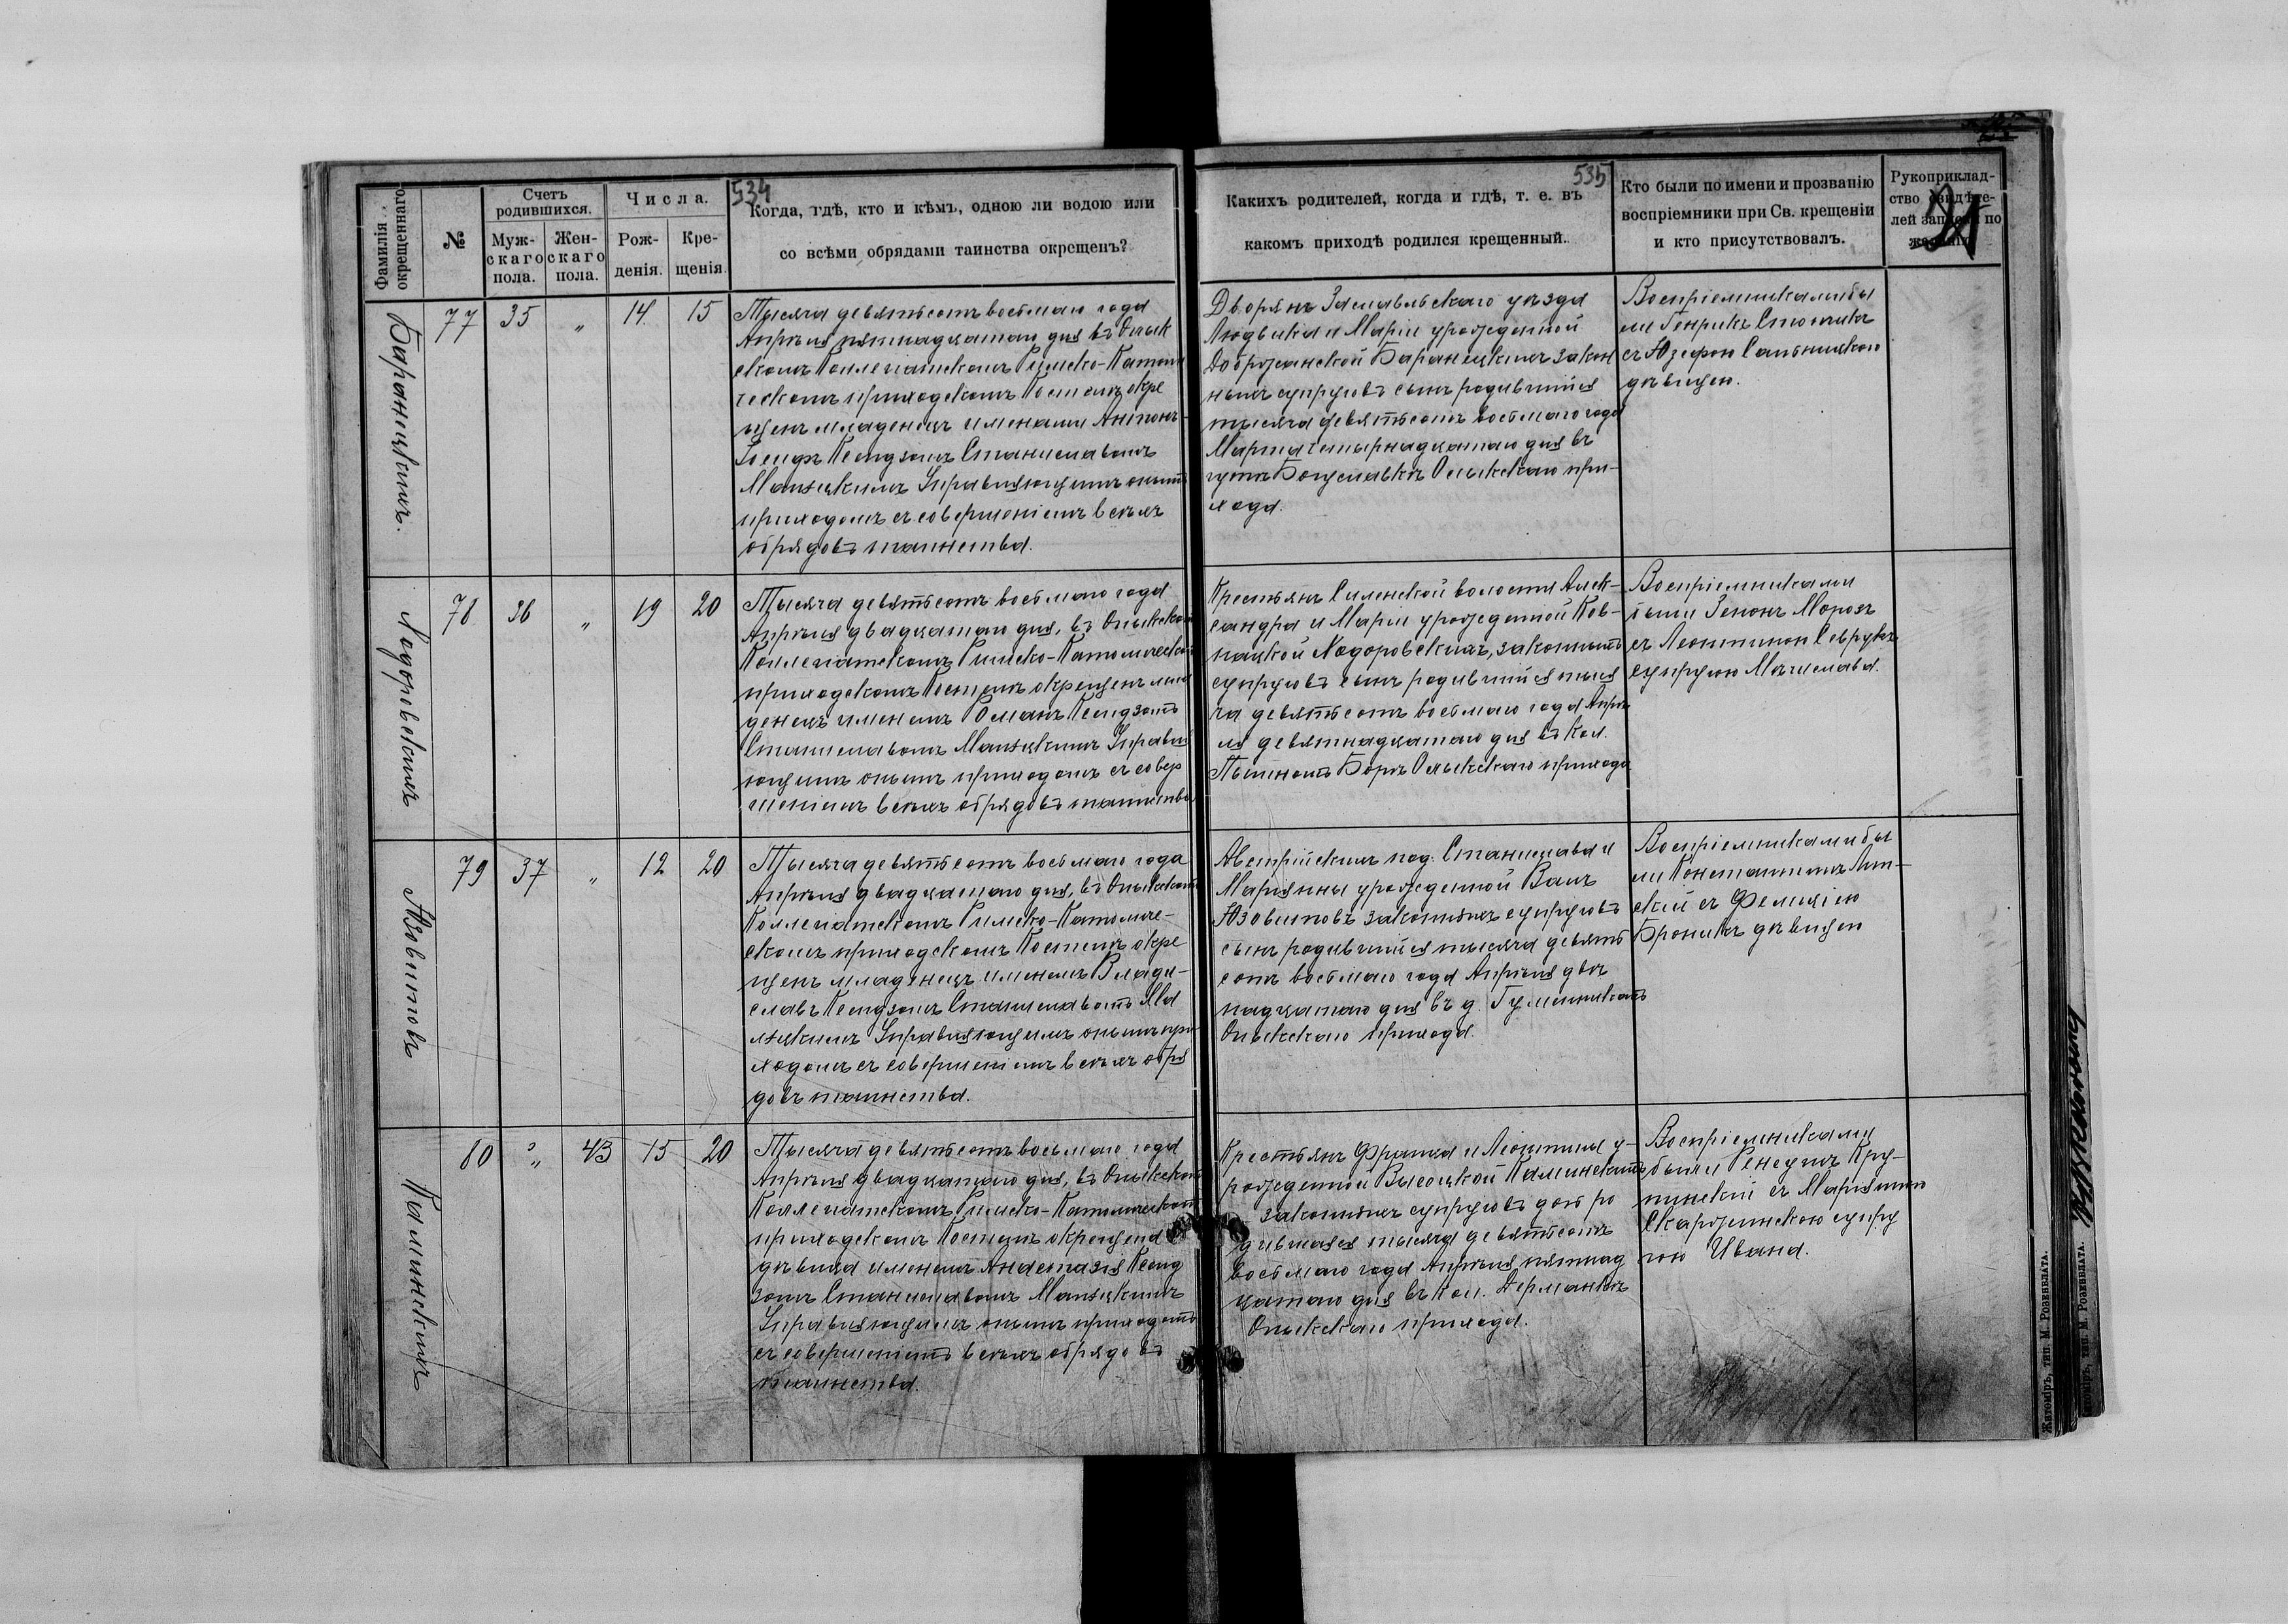 534
535
21
Фамилія окрещеннаго.
№
Счетъ родившихся.
Муж-
скаго
пола.
Жен-
скаго
пола.
Числа.
Рож-
денія.
Кре-
щенія.
Когда, гдѣ, кто и кѣмъ, одною ли водою или
со всѣми обрядами таинства окрещенъ?
Какихъ родителей, когда и гдѣ, т. е. въ
какомъ приходѣ родился крещенный.
Кто были по имени и прозванію
воспріемники при Св. крещеніи
и кто присутствовалъ.
Рукоприклад-
ство свидѣте-
лей записи по
желанію.
Баранецкихъ.
77
35
"
14
15
Тысяча девятьсотъ восьмаго года
Апрѣля пятнадцатаго дня въ Олык
скомъ Коллегіатскомъ Римско-Католи
ческомъ приходскомъ Костелѣ окре
щенъ младенецъ именами Антонъ-
Іосифъ Ксендзомъ Станиславомъ
Управляющимъ онымъ
приходомъ съ совершеніемъ всѣхъ
обрядовъ таинства.
Дворянъ Заславльскаго уѣзда
Людвика и Маріи урожденной
Доброжанской Баранецкихъ закон
ныхъ супруговъ сынъ родившійся
тысяча девятьсотъ восьмаго года
Марта четырнадцатаго дня въ
Богуславкѣ Олыкскаго при-
хода.
Воспріемниками бы
ли Генрикъ
съ Юзефою Сальницкою
дѣвицею.
Ходоровскихъ
78
36
"
19
20
Тысяча девятьсотъ восьмаго года
Апрѣля двадцатаго дня, въ Олыкском
Коллегіатскомъ Римско-Католическом
приходскомъ Костелѣ окрещенъ мла
денецъ именемъ Романъ Ксендзомъ
Станиславомъ Управля
ющимъ онымъ приходомъ съ совер
шеніемъ всѣхъ обрядовъ таинства
Крестьянъ Силенской волости Алек-
сандра и Маріи урожденной Ков-
нацкой Ходоровскихъ, законныхъ
супруговъ сынъ родившійся тыся
ча девятьсотъ восьмаго года Апрѣ
ля девятнадцатаго дня въ кол.
Борѣ Олыкскаго прихода
Воспріемниками
были Зенонъ Морозъ
съ Леонтиною Севрукъ
супругою Мечислава.
Юзвитовъ
79
37
"
12
20
Тысяча девятьсотъ восьмаго года
Апрѣля двадцатаго дня, въ Олыкском
Коллегіатскомъ Римско-Католиче-
скомъ приходскомъ Костелѣ окре
щенъ младенецъ именемъ Влади-
славъ Ксендзомъ Станиславомъ
Управляющимъ онымъ при
ходомъ съ совершеніемъ всѣхъ обря
довъ таинства.
Австрійскихъ под. Станислава и
Маріянны урожденной Валъ
Юзвитовъ законныхъ супруговъ
сынъ родившійся тысяча девять
сотъ восьмаго года Апрѣля двѣ
надцатаго дня въ д. Гуменникахъ
Олыкскаго прихода.
Воспріемниками бы
ли Константинъ Лип-
скій съ Фелиціею
Броникъ дѣвицею
Калинскихъ
80
"
43
15
20
Тысяча девятьсотъ восьмаго года
Апрѣля двадцатаго дня, въ Олыкском
Коллегіатскомъ Римско-Католическом
приходскомъ Костелѣ окрещена
дѣвица именемъ Анастазія Ксенд
зомъ Станиславомъ
Управляющимъ онымъ приходомъ
съ совершеніемъ всѣхъ обрядовъ
таинства.
Крестьянъ Франца и Леонтины у-
рожденной Высоцкой Калинскихъ
законныхъ супруговъ дочь ро
дившаяся тысяча девятьсотъ
восьмаго года Апрѣля пятнад
цатаго дня въ кол. Дерманкѣ
Олыкскаго прихода.
Воспріемниками
были Кру-
пинскій съ Маріянною
Скаржинскою супру
гою Ивана.
Житоміръ, тип. М. Розенблата.
Житоміръ, тип. М. Розенблата.